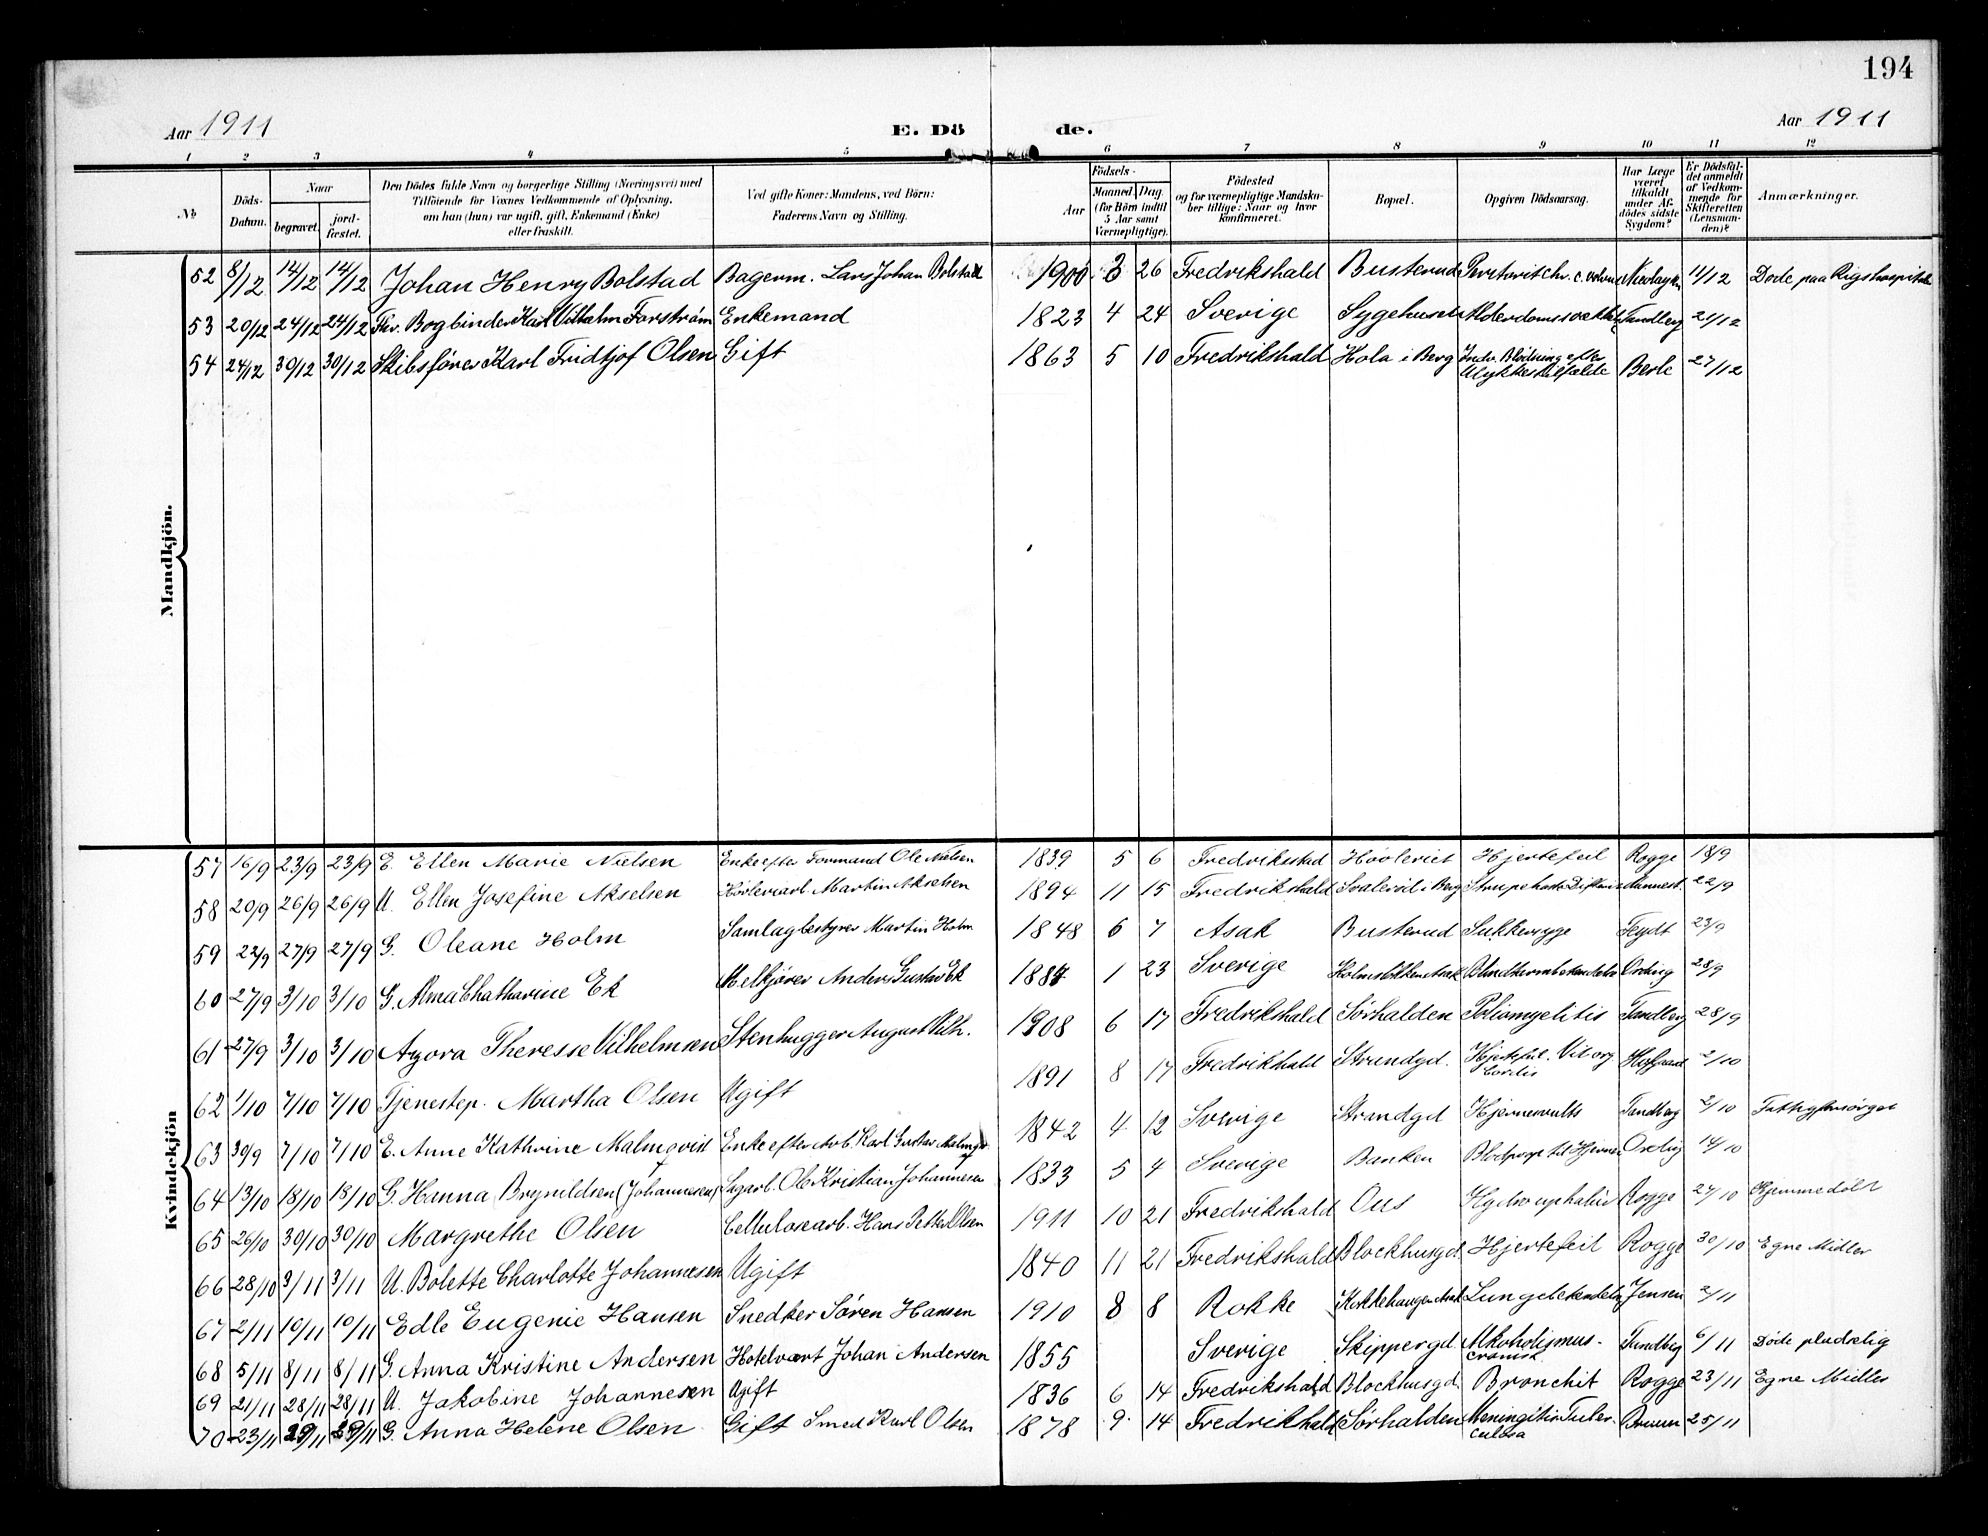 194
Aar 1911 E. Dö de. Aar 1911
1 2 3 4 5 6 7 8 9 10 11 12
No
Döds-Datum.
Naar begravet. jord-fæstet.
Den Dödes fulde Navn og borgerlige Stilling (Næringsvei) med Tilföiende for Voxnes Vedkommende af Oplysning, om han (hun) var ugift, gift, Enkemand (Enke) eller fraskilt.
Ved gifte Koner: Mandens, ved Börn: Faderens Navn og Stilling.
Födsels- Aar Maaned Dag. (for Börn indtil 5 Aar samt Værnepligtige).
Födested og for værnepligtige Mandskaber tillige: Naar og hvor konfirmeret.
Bopæl.
Opgiven Dödsaarsag.
Har Læge været tilkaldt under Afdödes sidste Sygdom?
Er Dödsfaldet anmeldt af Vedkommende for Skifteretten (Lensmanden)?
Anmærkninger.
Mandkjön.
52 8/12 14/12 14/12 Johan Henry Bolstad Bagerm. Lars Johan Bolstad 1900 3 26 Fredrikshald Busterud 11/12 Döde paa Rigshospitalet
53 20/12 24/12 24/12 Bogbinder Karl Vilhelm Farström Enkemand 1823 4 24 Sverige Sygehuset Alderdomssvækkelse Tandberg 21/12
54 24/12 30/12 30/12 Skibsförer Karl Fridtjof Olsen Gift 1863 5 10 Fredrikshald Hola i Berg Indv. Blödning efter Ulykkestilfælde Berle 27/12
Kvindekjön
57 16/9 23/9 23/9 E. Ellen Marie Nielsen Enke efter Formand Ole Nielsen 1839 5 6 Fredriksstad Hövleriet Hjertefeil Rogge 18/9
58 20/9 26/9 26/9 U. Ellen Josefine Akselsen Hövleriarb. Martin Akselsen 1894 11 15 Fredrikshald i Berg Strupehoste Difteri 22/9
59 22/9 27/9 27/9 G. Oleane Holm Samlagbestyrer Martin Holm 1848 6 7 Asak Busterud Sukkersyge Feydt 23/9
60 27/9 3/10 3/10 G. Alma Chatharine Ek Melkjörer Anders Gustav Ek 1887 1 23 Sverige Ording 28/9
61 27/9 3/10 3/10 Agora Theresse Vilhelmsen Stenhugger August Vilh. 1908 6 17 Fredrikshald Sörhalden Poliomyelitis Tandberg 28/9
62 1/10 7/10 7/10 Tjenestep. Martha Olsen Ugift 1891 8 17 Fredrikshald Strandgd. Hjertefeil. Vit. org. Cordis 2/10
63 30/9 7/10 7/10 E. Anne Kathrine Malmqvist Enke efter Arb. Karl Gustav Malmqv. 1842 4 12 Sverige Strandgd Tandberg 2/10 Fattigforsörget
64 13/10 18/10 18/10 G. Hanna Brynildsen (Johannesen) Sagarb. Ole Kristian Johannesen 1833 5 4 Sverige Banken Blodprop til Hjernen Ording 14/10
65 26/10 30/10 30/10 Margrethe Olsen Cellulosearb. Hans Petter Olsen 1911 10 21 Fredrikshald Ous Hydrocephalus Rogge 27/10 Hjemmedöbt
66 28/10 3/11 3/11 U. Bolette Charlotte Johannesen Ugift 1840 11 21 Fredrikshald Blockhusgd. Hjertefeil Rogge 30/10 Egne Midler
67 2/11 10/11 10/11 Edle Eugenie Hansen Snedker Sören Hansen 1910 8 8 Rokke Lungebetændelse Jensen 2/11
68 5/11 8/11 8/11 G. Anna Kristine Andersen Hotelvært Johan Andersen 1855 Sverige Skippergd. Alkoholismus cronisk. Tandberg 6/11 Döde pludselig
69 21/11 28/11 28/11 U. Jakobine Johannesen Ugift 1836 6 14 Fredrikshald Blockhusgd. Bronchit Rogge 23/11 Egne Midler
70 23/11 29/11 29/11 G. Anna Helene Olsen Gift Smed Karl Olsen 1878 9 14 Fredrikshald Sörhalden Meningitis Tuberculosa 25/11